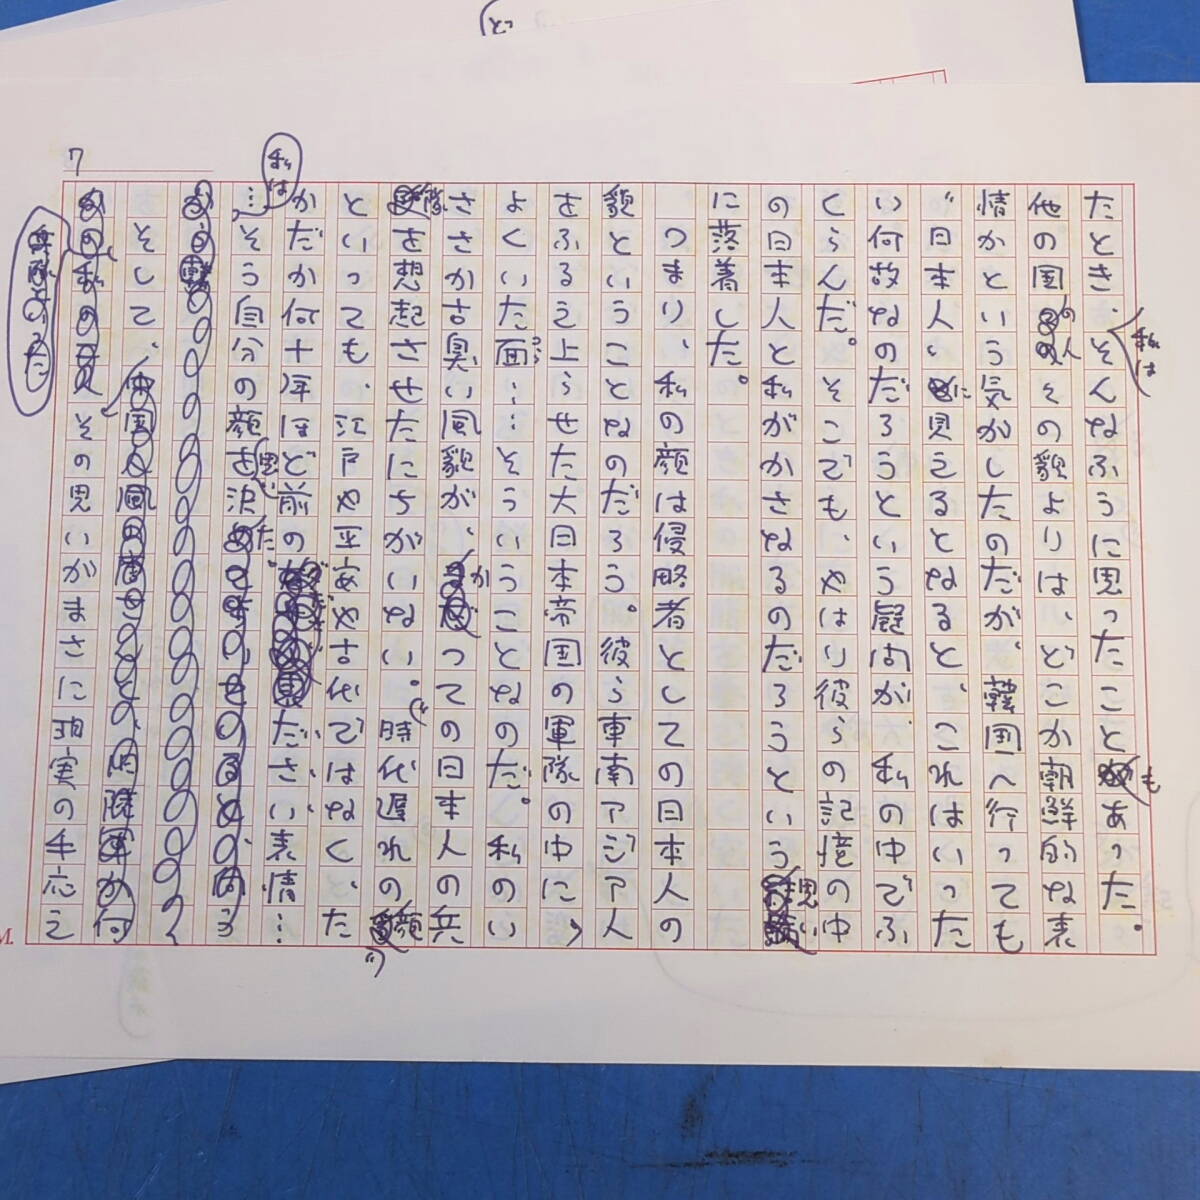 7
たとき、私はそんなふうに思ったこともあった。
他の国の人の貌よりは、どこか朝鮮的な表
情かという気がしたのだが、韓国へ行っても
日本人に見えるとなると、これはいった
い何故なのだろうという疑問が、私の中でふ
くらんだ。そこでも、やはり彼らの記憶の中
の日本人と私がかさなるのだろうという思い
に落着した。
つまり、私の顔は侵略者としての日本人の
貌ということなのだろう。彼ら東南アジア人
をふるえ上らせた大日本帝国の軍隊の中に、
よくいた面……そういうことなのだ。私のい
ささか古臭い風貌が、かつての日本人の兵
隊を想起させたにちがいない。時代遅れの顔
といっても、江戸や平安や古代ではなく、た
かだか何十年ほど前のださい表情…
…私はそう自分の顔を思った。
そして、
兵隊よりうた
その思いがまさに現実の手応え